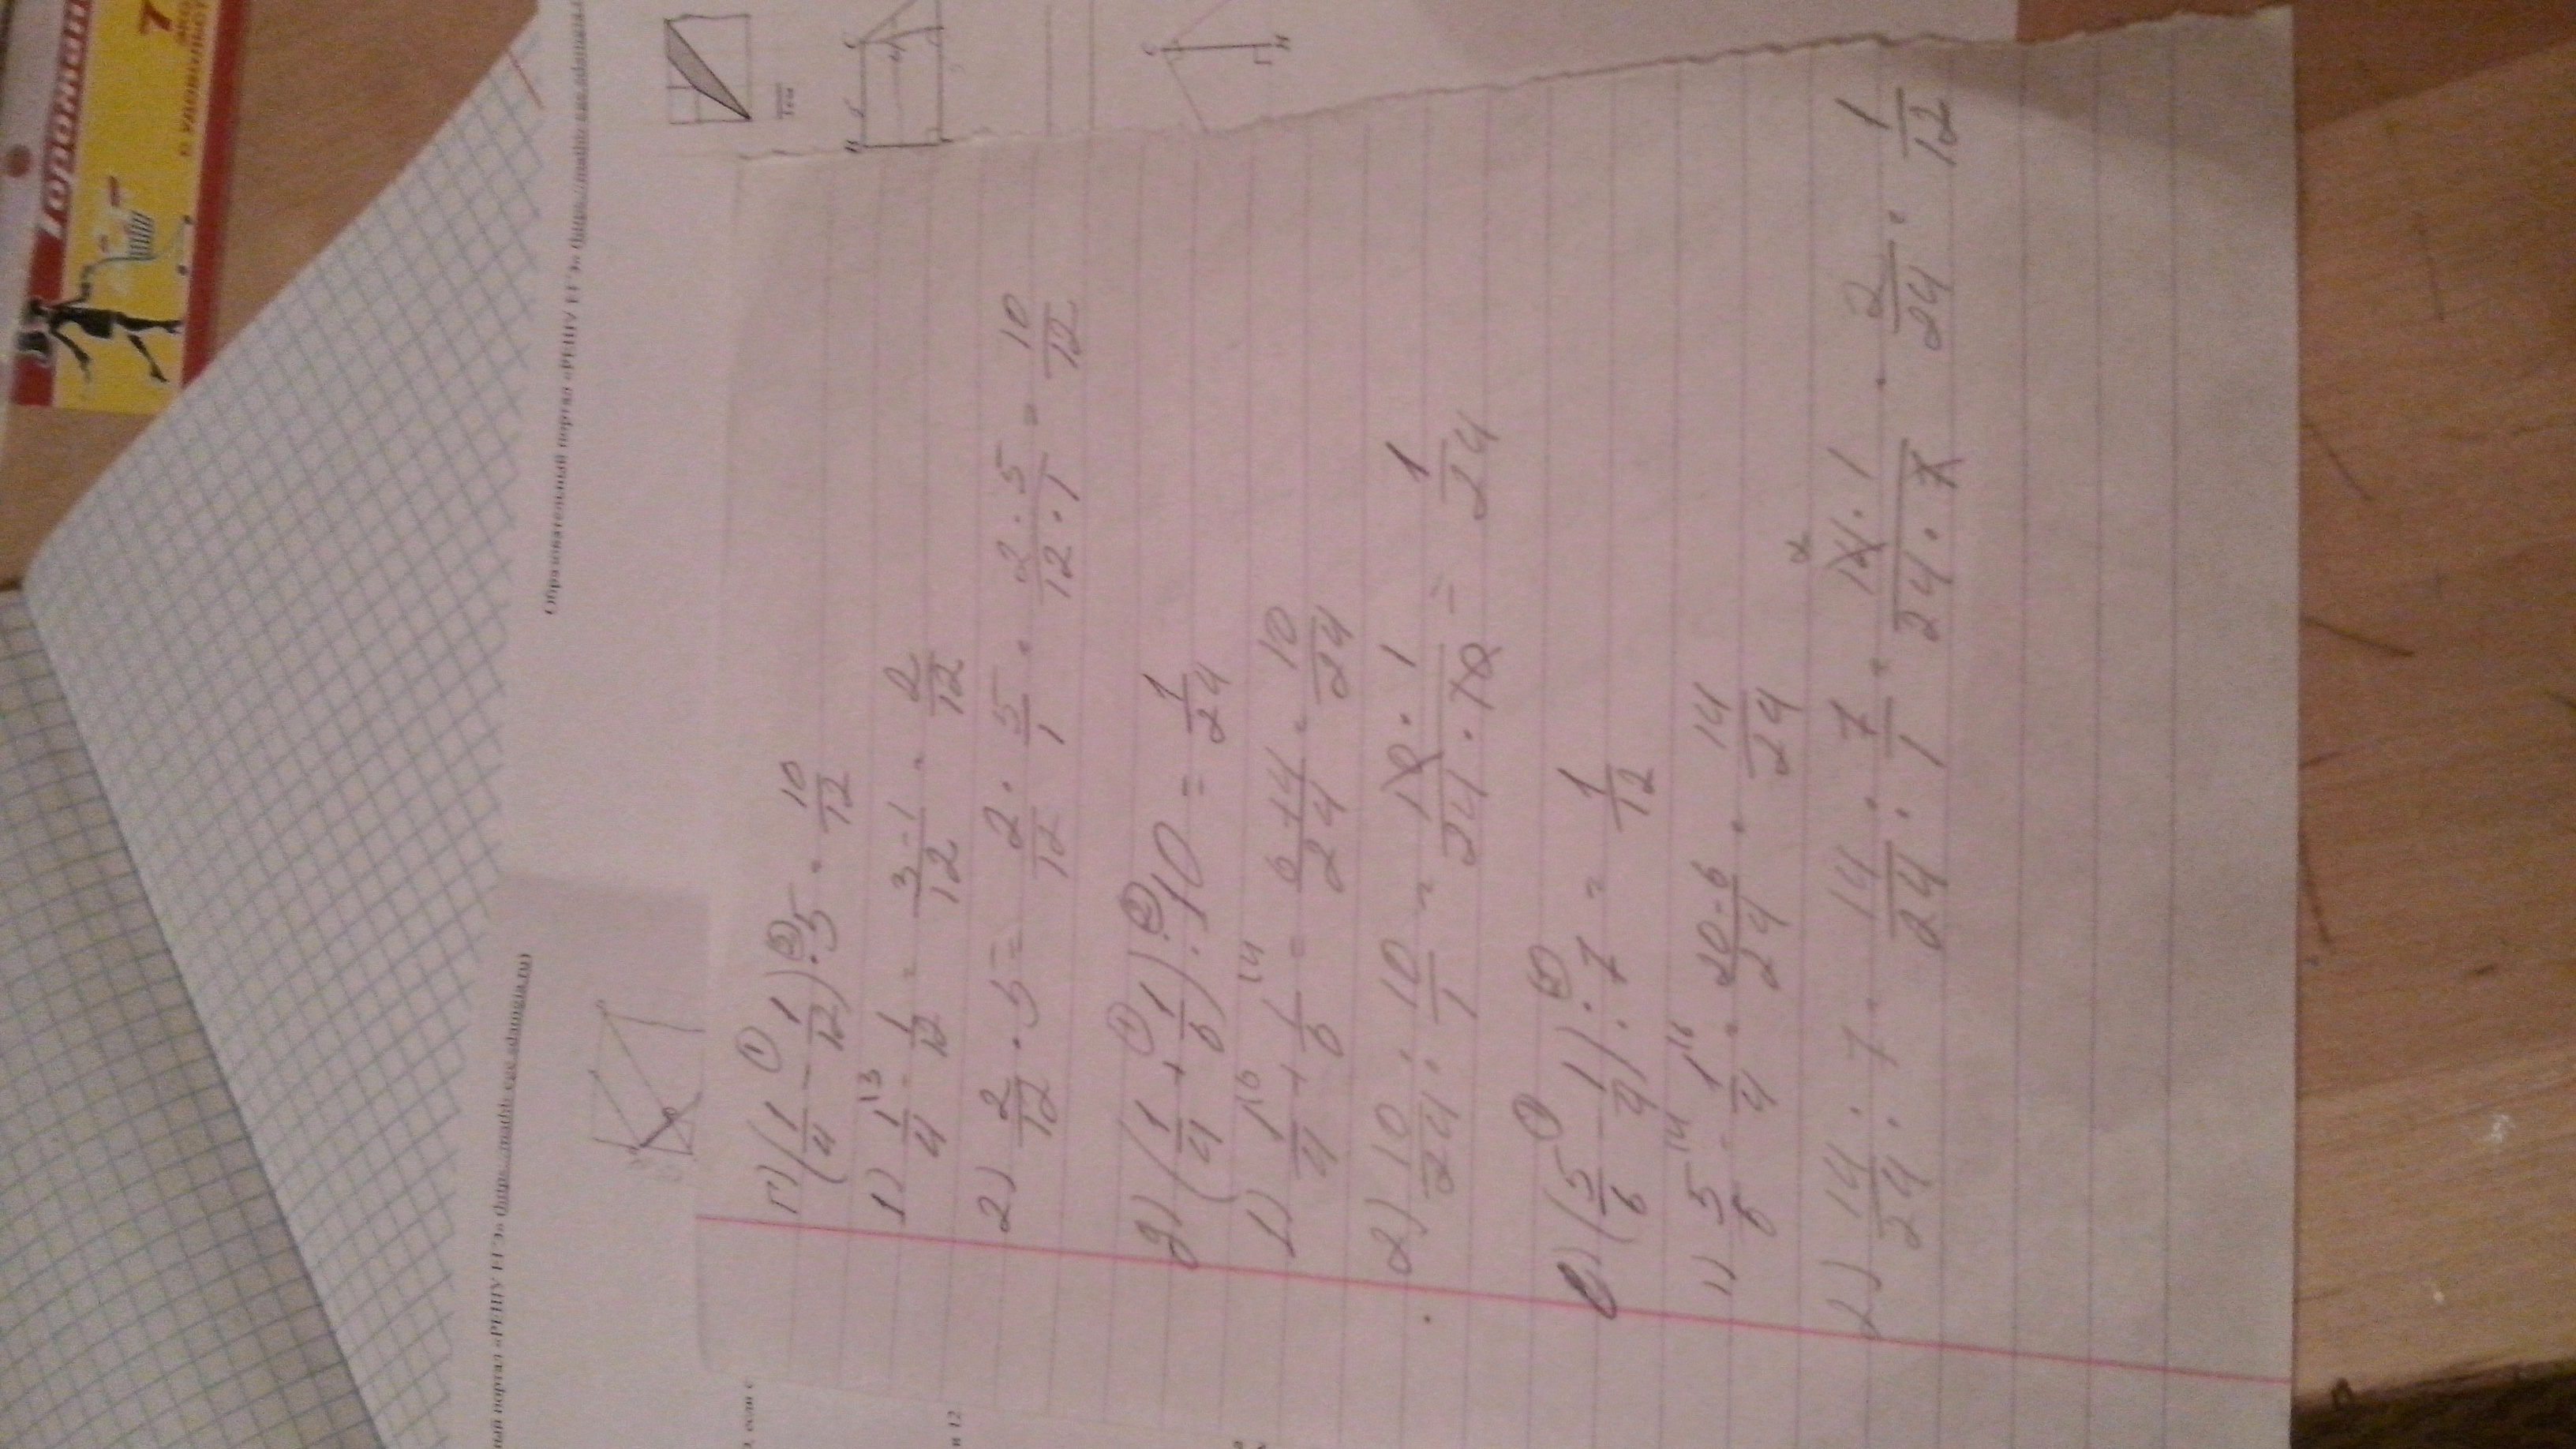 Горожан
7
Образовательный портал «РЕШУ ЕГЭ» (https://mathb-ege.sdamgia.
ный портал «РЕШУ ЕГЭ» (https://mathb-ege.sdamgia.ru)
, если с
и 12
г) (1/4 - 1/12) · 5 = 10/12
1) 1/4 - 1/12 = 3-1/12 = 2/12
2) 2/12 · 5 = 2/12 · 5/1 = 2·5/12·1 = 10/12
д) (1/4 + 1/6) : 10 = 1/24
1) 1/4 + 1/6 = 6+4/24 = 10/24
2) 10/24 : 10/1 = 10·1/24·10 = 1/24
е) (5/6 - 1/4) : 7 = 1/12
1) 5/6 - 1/4 = 20-6/24 = 14/24
2) 14/24 : 7 = 14/24 : 7/1 = 14·1/24·7 = 2/24 = 1/12